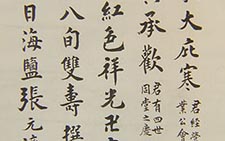 大庇寒
君經營
業公會
承歡
君有四世
同堂之慶
紅色祥光卍
八旬雙壽撰
日海鹽張元